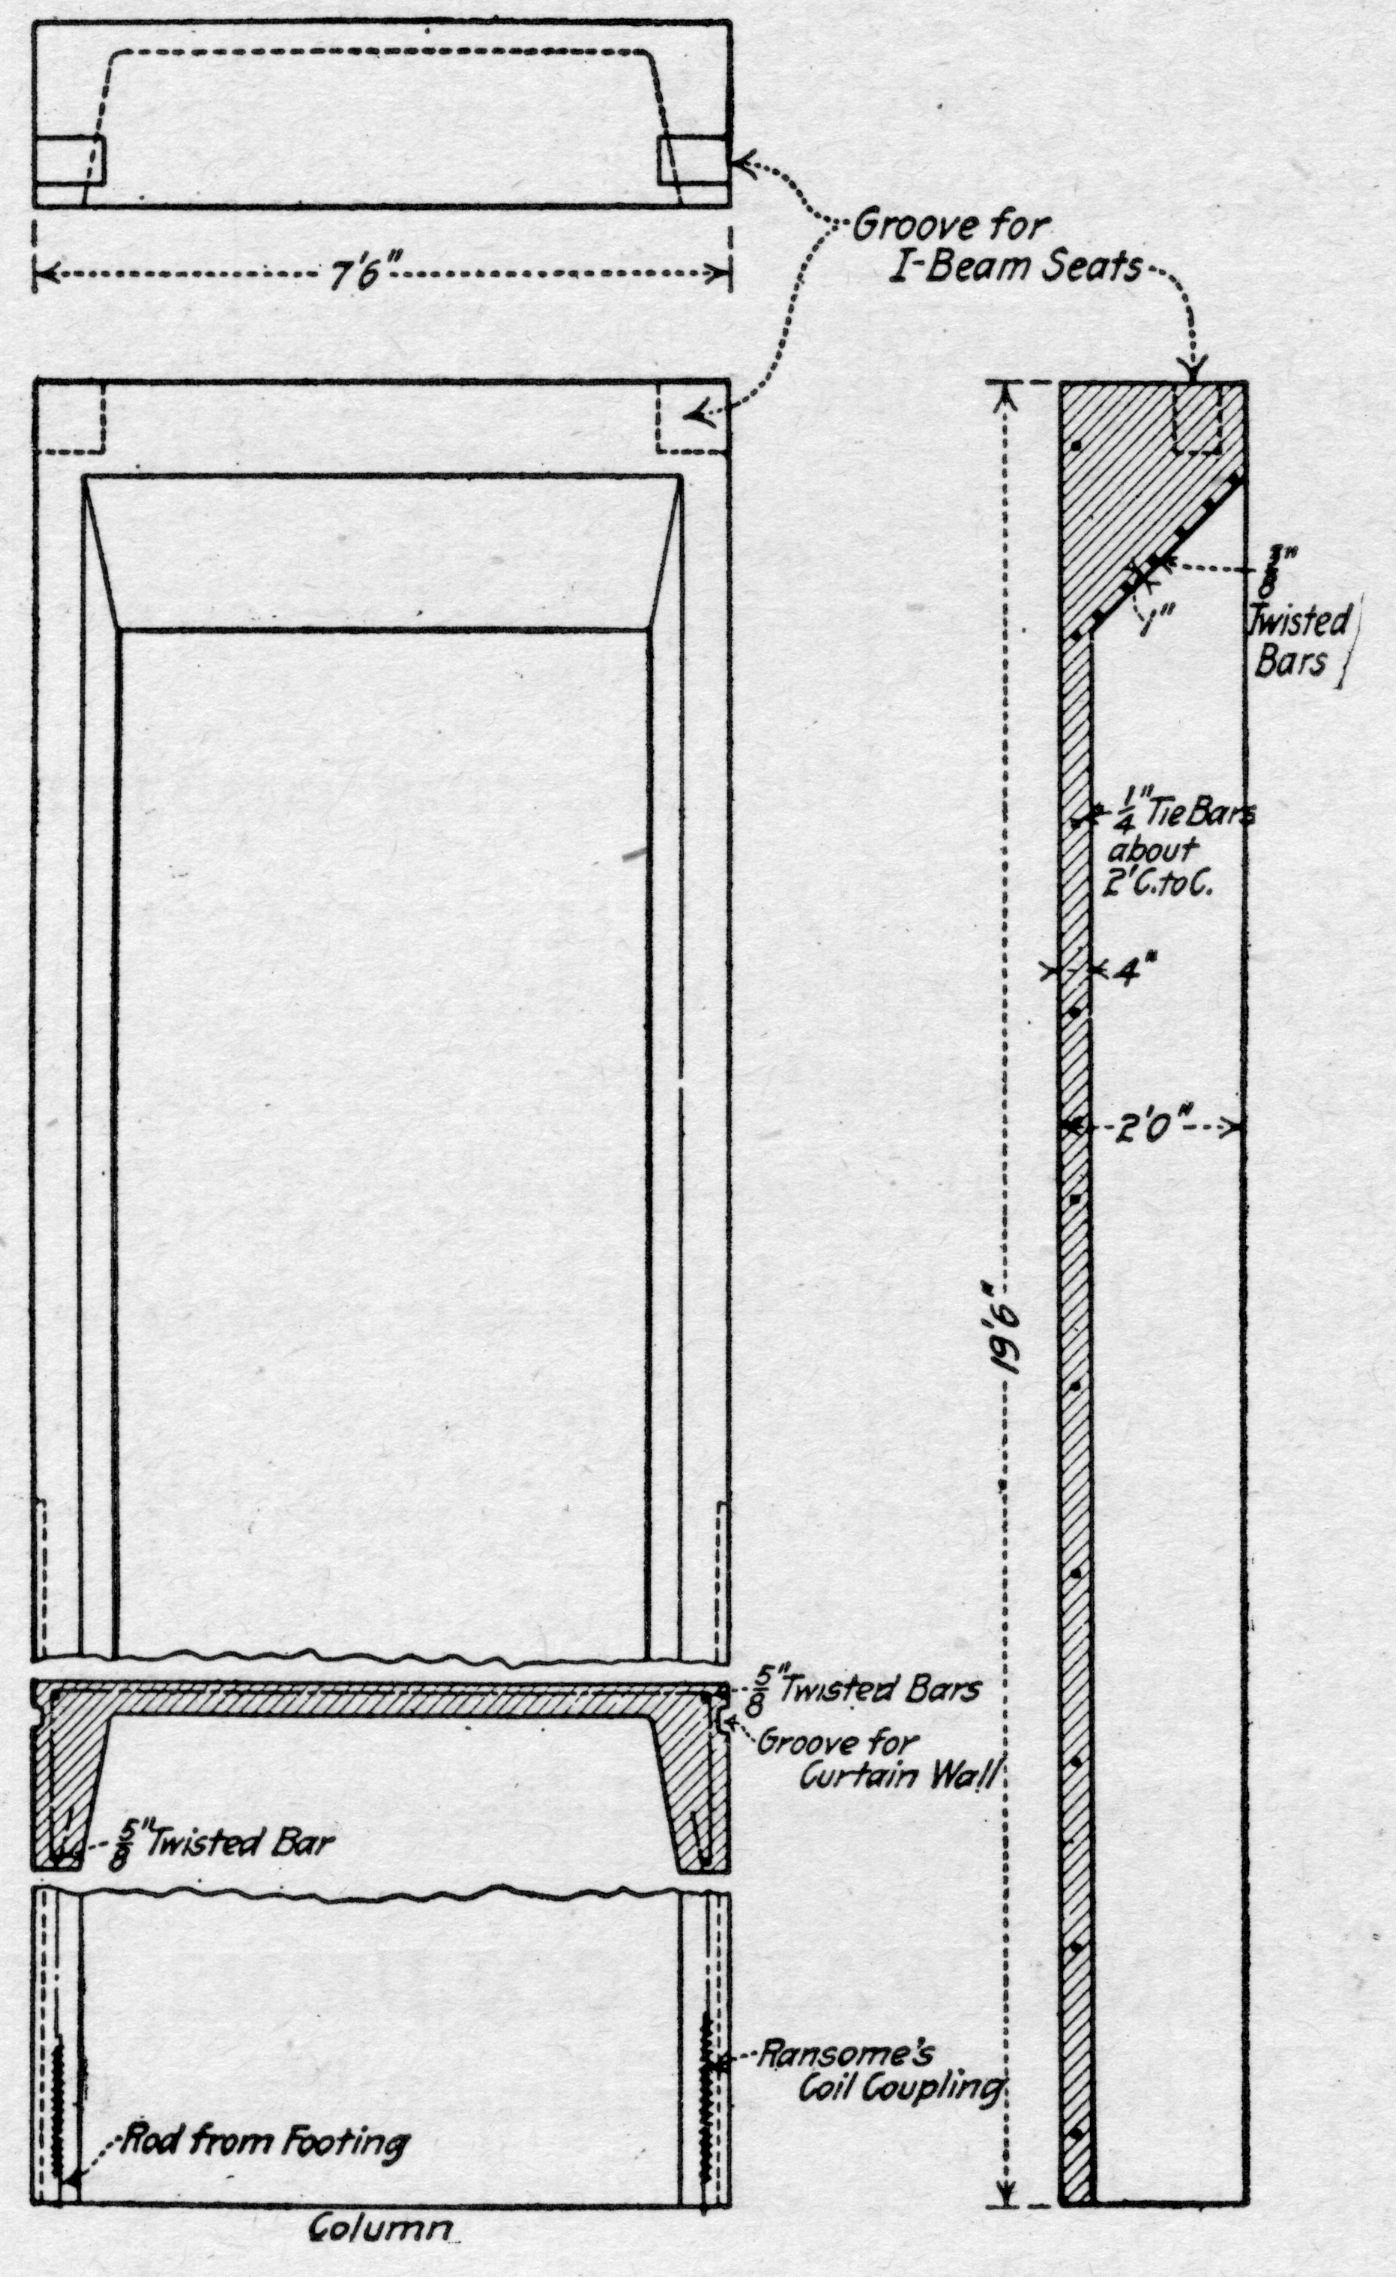 7'6"
Groove for
I-Beam Seats
3/8"
Twisted
Bars
1"
1/4" Tie Bars
about
2' C. to C.
4"
2'0"
19'6"
5/8" Twisted Bars
Groove for
Curtain Wall
5/8" Twisted Bar
Ransome's
Coil Coupling
Rod from Footing
Column